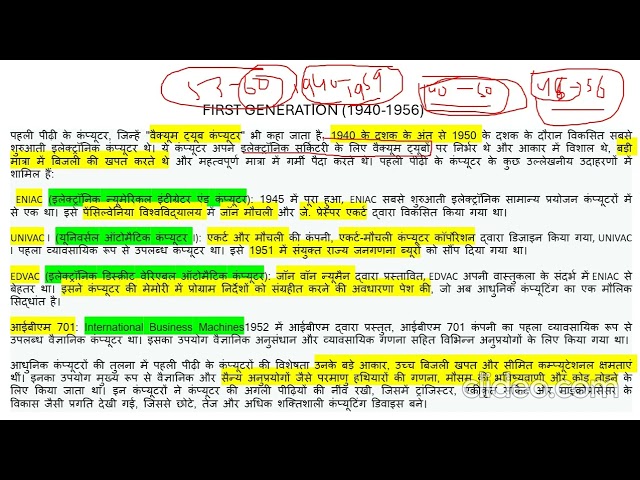 53-60 1940-1959 40-60 46→56
FIRST GENERATION (1940-1956)
पहली पीढ़ी के कंप्यूटर, जिन्हें "वैक्यूम ट्यूब कंप्यूटर" भी कहा जाता है, 1940 के दशक के अंत से 1950 के दशक के दौरान विकसित सबसे
शुरुआती इलेक्ट्रॉनिक कंप्यूटर थे। ये कंप्यूटर अपने इलेक्ट्रॉनिक सर्किटरी के लिए वैक्यूम ट्यूबों पर निर्भर थे और आकार में विशाल थे, बड़ी
मात्रा में बिजली की खपत करते थे और महत्वपूर्ण मात्रा में गर्मी पैदा करते थे। पहली पीढ़ी के कंप्यूटर के कुछ उल्लेखनीय उदाहरणों में
शामिल हैं:
ENIAC (इलेक्ट्रॉनिक न्यूमेरिकल इंटीग्रेटर एंड कंप्यूटर): 1945 में पूरा हुआ, ENIAC सबसे शुरुआती इलेक्ट्रॉनिक सामान्य प्रयोजन कंप्यूटरों में
से एक था। इसे पेंसिल्वेनिया विश्वविद्यालय में जॉन मौचली और जे. प्रेस्पर एकर्ट द्वारा विकसित किया गया था।
UNIVAC। (यूनिवर्सल ऑटोमैटिक कंप्यूटर ।): एकर्ट और मौचली की कंपनी, एकर्ट-मौचली कंप्यूटर कॉर्पोरेशन द्वारा डिज़ाइन किया गया, UNIVAC
। पहला व्यावसायिक रूप से उपलब्ध कंप्यूटर था। इसे 1951 में संयुक्त राज्य जनगणना ब्यूरो को सौंप दिया गया था।
EDVAC (इलेक्ट्रॉनिक डिस्क्रीट वेरिएबल ऑटोमैटिक कंप्यूटर): जॉन वॉन न्यूमैन द्वारा प्रस्तावित, EDVAC अपनी वास्तुकला के संदर्भ में ENIAC से
बेहतर था। इसने कंप्यूटर की मेमोरी में प्रोग्राम निर्देशों को संग्रहीत करने की अवधारणा पेश की, जो अब आधुनिक कंप्यूटिंग का एक मौलिक
सिद्धांत है।
आईबीएम 701: International Business Machines1952 में आईबीएम द्वारा प्रस्तुत, आईबीएम 701 कंपनी का पहला व्यावसायिक रूप से
उपलब्ध वैज्ञानिक कंप्यूटर था। इसका उपयोग वैज्ञानिक अनुसंधान और व्यावसायिक गणना सहित विभिन्न अनुप्रयोगों के लिए किया गया था।
आधुनिक कंप्यूटरों की तुलना में पहली पीढ़ी के कंप्यूटरों की विशेषता उनके बड़े आकार, उच्च बिजली खपत और सीमित कम्प्यूटेशनल क्षमताएं
थीं। इनका उपयोग मुख्य रूप से वैज्ञानिक और सैन्य अनुप्रयोगों जैसे परमाणु हथियारों की गणना, मौसम की भविष्यवाणी और कोड तोड़ने के
लिए किया जाता था। इन कंप्यूटरों ने कंप्यूटर की अगली पीढ़ियों की नींव रखी, जिसमें ट्रांजिस्टर, एकीकृत सर्किट और माइक्रोप्रोसेसर के
विकास जैसी प्रगति देखी गई, जिससे छोटे, तेज और अधिक शक्तिशाली कंप्यूटिंग डिवाइस बने।
clideo.com